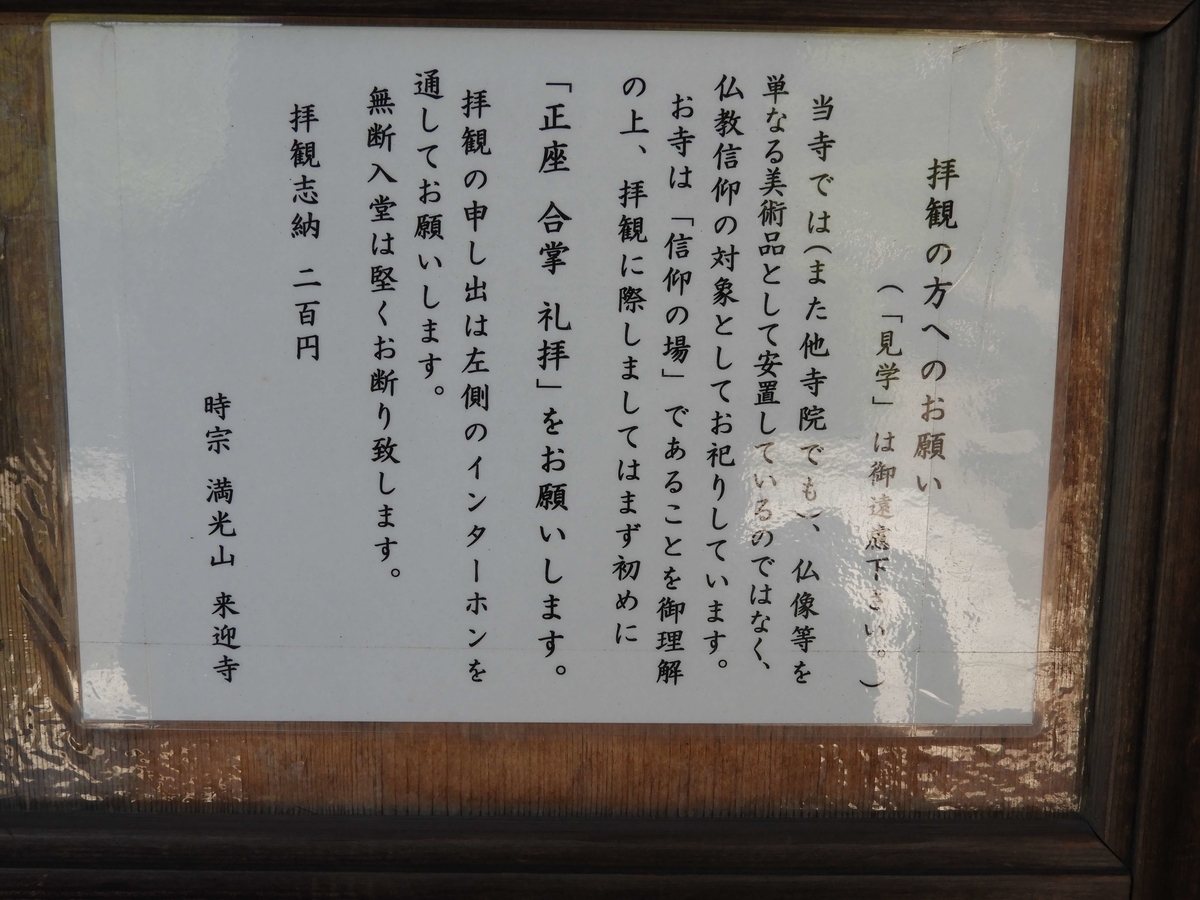 拝観の方へのお願い
（「見学」は御遠慮下さい。）
当寺では（また他寺院でも）、仏像等を
単なる美術品として安置しているのではなく、
仏教信仰の対象としてお祀りしています。
お寺は「信仰の場」であることを御理解
の上、拝観に際しましてはまず初めに
「正座 合掌 礼拝」をお願いします。
拝観の申し出は左側のインターホンを
通してお願いします。
無断入堂は堅くお断り致します。
拝観志納 二百円
時宗 満光山 来迎寺